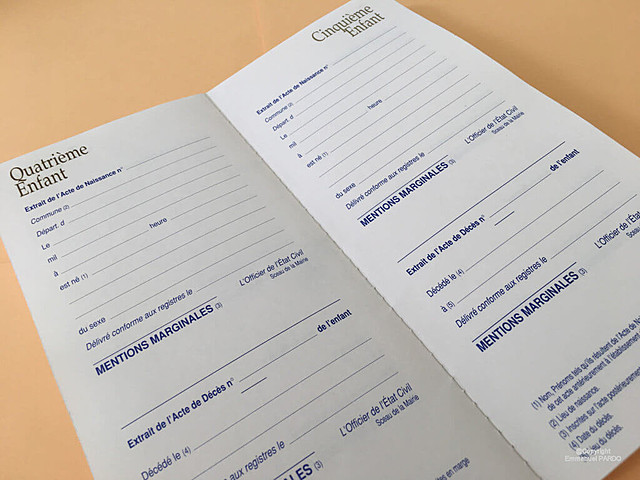 Quatrième
Enfant
Extrait de l'Acte de Naissance n°
Commune (2)
Départ. d
Le
heure
mil
à
est né (1)
du sexe
L'Officier de l'État Civil
Sceau de la Mairie
Délivré conforme aux registres le
MENTIONS MARGINALES (3)
de l'enfant
Extrait de l'Acte de Décès n°
Décédé le (4)
L'Officier de l'État Civil
Sceau de la Mairie
aux registres le
(3)
en marge
Cinquième
Enfant
Extrait de l'Acte de Naissance n°
Commune (2)
Départ. d
Le
heure
mil
à
est né (1)
du sexe
L'Officier de l'État Civil
Sceau de la Mairie
Délivré conforme aux registres le
MENTIONS MARGINALES (3)
de l'enfant
Extrait de l'Acte de Décès n°
Décédé le (4)
à (5)
L'Officier de l'État
Sceau de la
Délivré conforme aux registres le
MENTIONS MARGINALES (3)
(1) Nom, Prénoms tels qu'ils résultent de l'Acte de
de cet acte antérieurement à l'établissement
(2) Lieu de naissance.
(3) Inscrites sur l'acte postérieurement
(4) Date du décès.
du décès.
©Copyright
Emmanuel PARDO